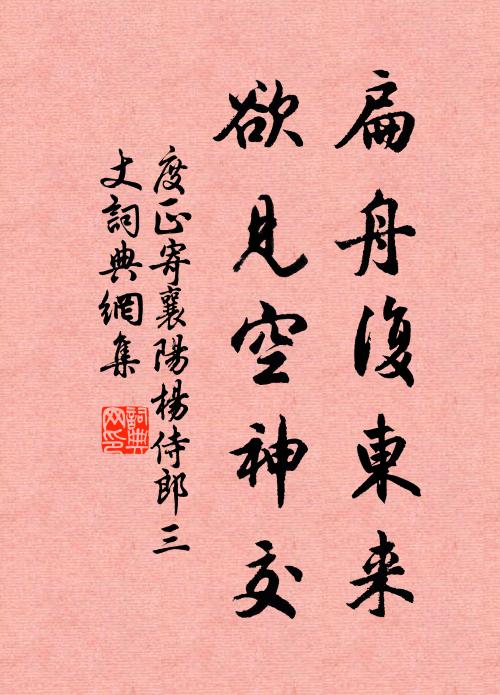 扁舟復東来
欲見空神交
度正寄襄陽楊侍郎三
丈詞典網集
詞典網印